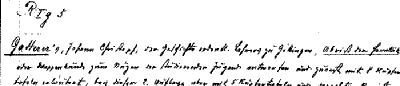 RTg 5
Gatterer's, Johann Christoph, der Geschichte ordentl. Lehrers zu Göttingen, Abriß der Heraldik
oder Wappenkunde zum Nuzen der studierenden Jugend entworfen und zuerst mit 8 Kupfer
tafeln erläutert, bey dieser 2. Auflage aber mit 5 Kupfertafeln